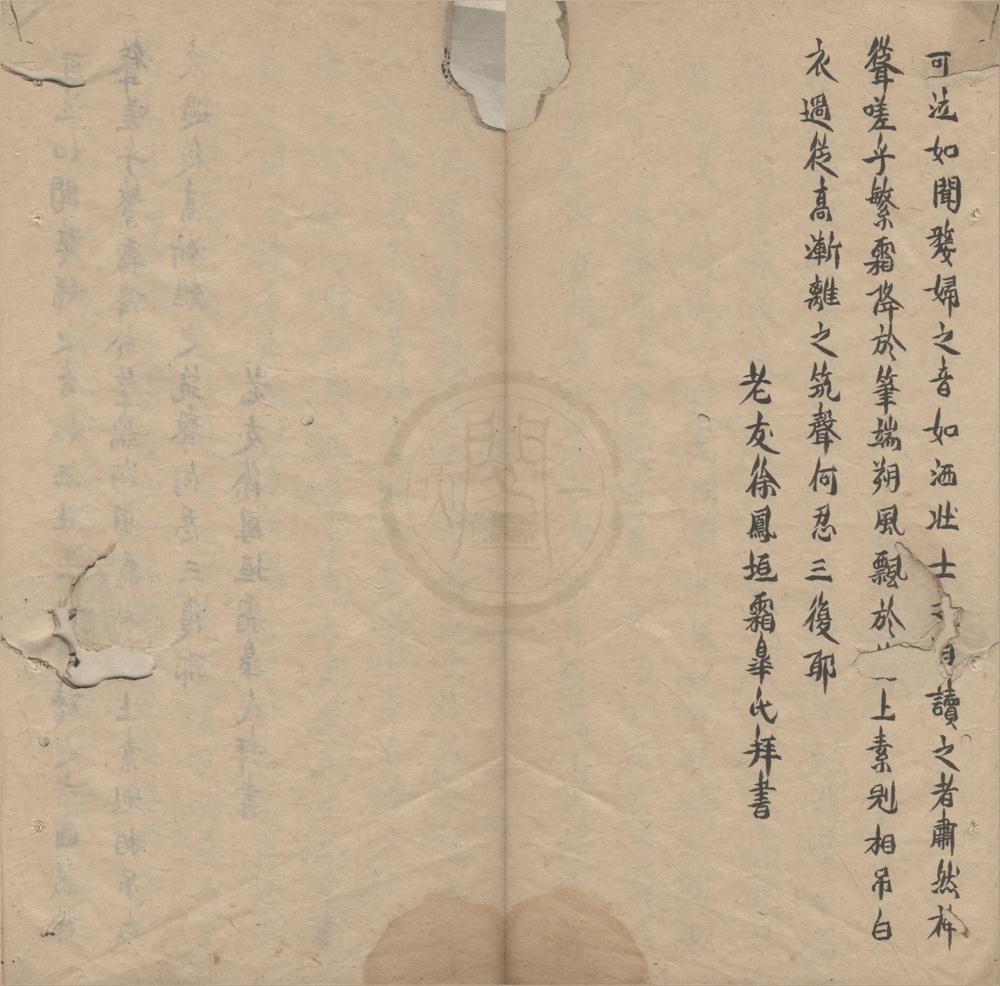 可泣如聞嫠婦之音如洒壯士讀之者肅然神
聳嗟乎繁霜降於筆端朔風飄於上素剡相吊白
衣過從高漸離之筑聲何忍三復耶
老友徐鳳垣霜皐氏拜書